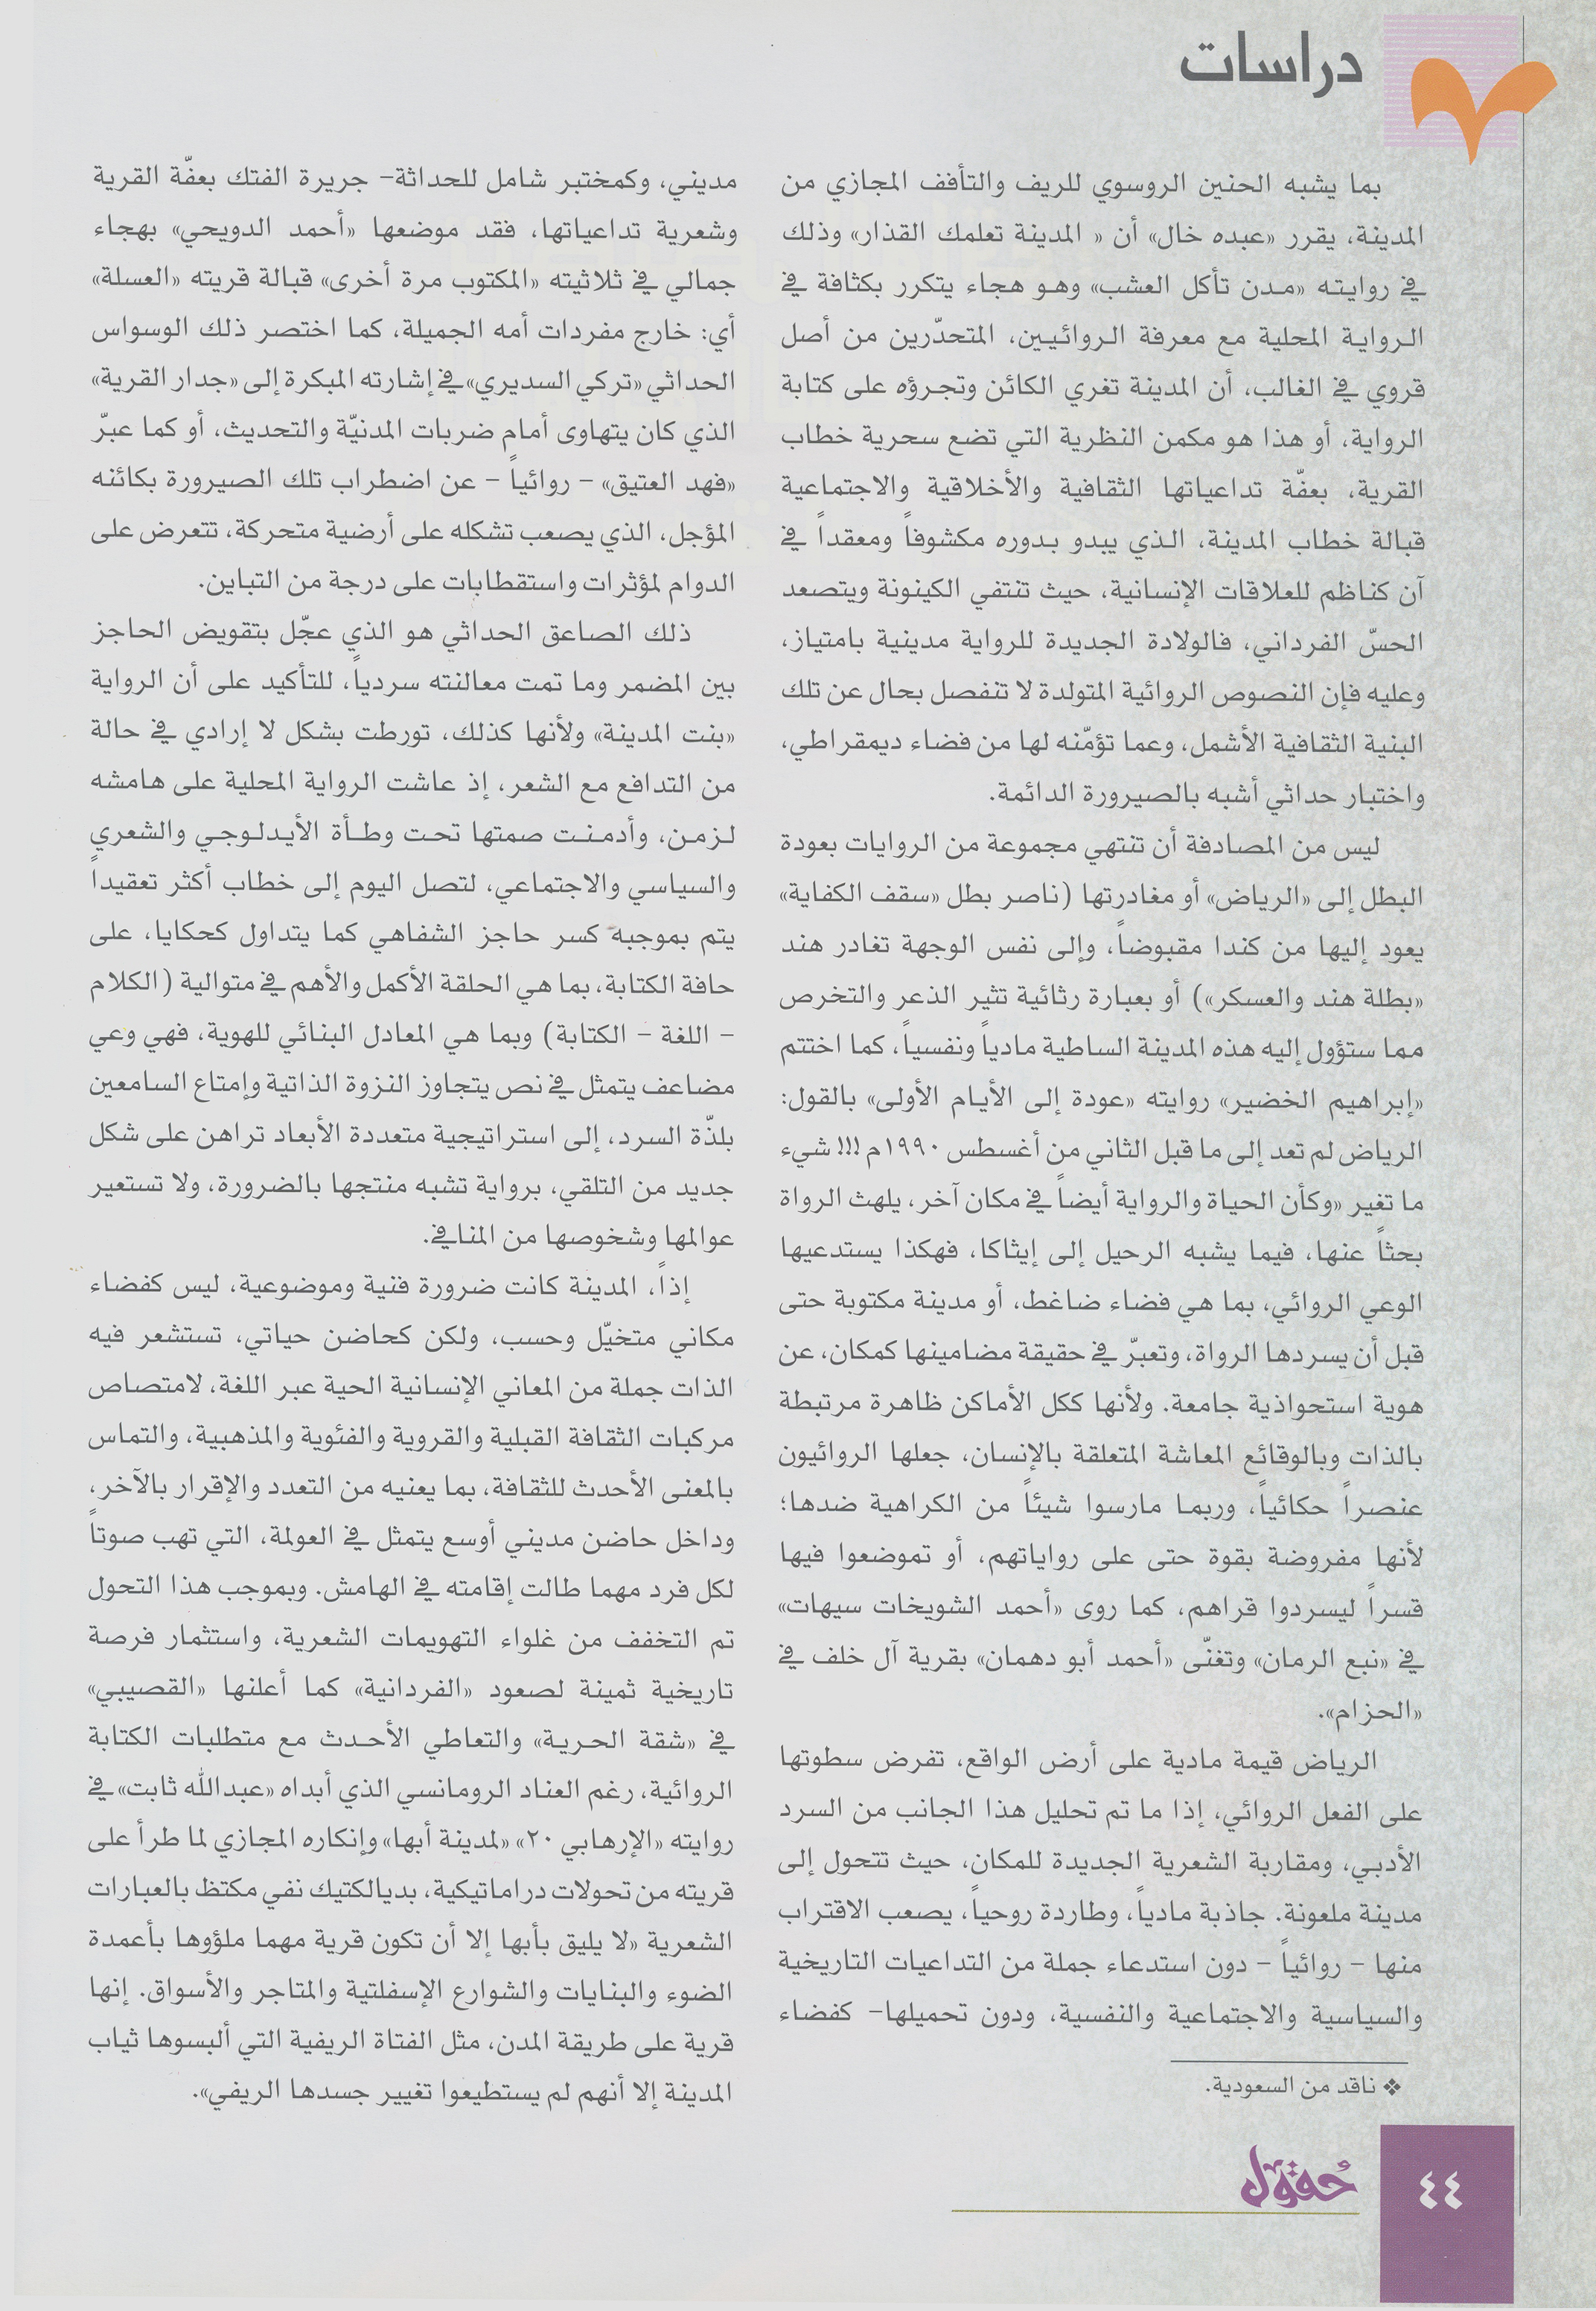 دراسات
بما يشبه الحنين الروسوي للريف والتأفف المجازي من
المدينة، يقرر «عبده خال» أن « المدينة تعلمك القذار» وذلك
في روايته «مدن تأكل العشب» وهو هجاء يتكرر بكثافة في
الرواية المحلية مع معرفة الروائيين، المتحدّرين من أصل
قروي في الغالب، أن المدينة تغري الكائن وتجرؤه على كتابة
الرواية، أو هذا هو مكمن النظرية التي تضع سحرية خطاب
القرية، بعفّة تداعياتها الثقافية والأخلاقية والاجتماعية
قبالة خطاب المدينة، الذي يبدو بدوره مكشوفاً ومعقداً في
آن كناظم للعلاقات الإنسانية، حيث تنتفي الكينونة ويتصعد
الحسّ الفرداني، فالولادة الجديدة للرواية مدينية بامتياز،
وعليه فإن النصوص الروائية المتولدة لا تنفصل بحال عن تلك
البنية الثقافية الأشمل، وعما تؤمّنه لها من فضاء ديمقراطي،
واختبار حداثي أشبه بالصيرورة الدائمة.
ليس من المصادفة أن تنتهي مجموعة من الروايات بعودة
البطل إلى «الرياض» أو مغادرتها (ناصر بطل «سقف الكفاية»
يعود إليها من كندا مقبوضاً، وإلى نفس الوجهة تغادر هند
«بطلة هند والعسكر») أو بعبارة رثائية تثير الذعر والتخرص
مما ستؤول إليه هذه المدينة الساطية مادياً ونفسياً، كما اختتم
«إبراهيم الخضير» روايته «عودة إلى الأيام الأولى» بالقول:
الرياض لم تعد إلى ما قبل الثاني من أغسطس ١٩٩٠م !!! شيء
ما تغير «وكأن الحياة والرواية أيضاً في مكان آخر، يلهث الرواة
بحثاً عنها، فيما يشبه الرحيل إلى إيثاكا، فهكذا يستدعيها
الوعي الروائي، بما هي فضاء ضاغط، أو مدينة مكتوبة حتى
قبل أن يسردها الرواة، وتعبرّ في حقيقة مضامينها كمكان، عن
هوية استحواذية جامعة. ولأنها ككل الأماكن ظاهرة مرتبطة
بالذات وبالوقائع المعاشة المتعلقة بالإنسان، جعلها الروائيون
عنصراً حكائياً، وربما مارسوا شيئاً من الكراهية ضدها؛
لأنها مفروضة بقوة حتى على رواياتهم، أو تموضعوا فيها
قسراً ليسردوا قراهم، كما روى «أحمد الشويخات سيهات»
في «نبع الرمان» وتغنّى «أحمد أبو دهمان» بقرية آل خلف في
«الحزام».
الرياض قيمة مادية على أرض الواقع، تفرض سطوتها
على الفعل الروائي، إذا ما تم تحليل هذا الجانب من السرد
الأدبي، ومقاربة الشعرية الجديدة للمكان، حيث تتحول إلى
مدينة ملعونة. جاذبة مادياً، وطاردة روحياً، يصعب الاقتراب
منها – روائياً – دون استدعاء جملة من التداعيات التاريخية
والسياسية والاجتماعية والنفسية، ودون تحميلها– كفضاء
❖ ناقد من السعودية.
مديني، وكمختبر شامل للحداثة– جريرة الفتك بعفّة القرية
وشعرية تداعياتها، فقد موضعها «أحمد الدويحي» بهجاء
جمالي في ثلاثيته «المكتوب مرة أخرى» قبالة قريته «العسلة»
أي: خارج مفردات أمه الجميلة، كما اختصر ذلك الوسواس
الحداثي «تركي السديري» في إشارته المبكرة إلى «جدار القرية»
الذي كان يتهاوى أمام ضربات المدنيّة والتحديث، أو كما عبرّ
«فهد العتيق» – روائياً – عن اضطراب تلك الصيرورة بكائنه
المؤجل، الذي يصعب تشكله على أرضية متحركة، تتعرض على
الدوام لمؤثرات واستقطابات على درجة من التباين.
ذلك الصاعق الحداثي هو الذي عجّل بتقويض الحاجز
بين المضمر وما تمت معالنته سردياً، للتأكيد على أن الرواية
«بنت المدينة» ولأنها كذلك، تورطت بشكل لا إرادي في حالة
من التدافع مع الشعر، إذ عاشت الرواية المحلية على هامشه
لزمن، وأدمنت صمتها تحت وطأة الأيدلوجي والشعري
والسياسي والاجتماعي، لتصل اليوم إلى خطاب أكثر تعقيداً
يتم بموجبه كسر حاجز الشفاهي كما يتداول كحكايا، على
حافة الكتابة، بما هي الحلقة الأكمل والأهم في متوالية (الكلام
– اللغة – الكتابة) وبما هي المعادل البنائي للهوية، فهي وعي
مضاعف يتمثل في نص يتجاوز النزوة الذاتية وإمتاع السامعين
بلذّة السرد، إلى استراتيجية متعددة الأبعاد تراهن على شكل
جديد من التلقي، برواية تشبه منتجها بالضرورة، ولا تستعير
عوالمها وشخوصها من المنافي.
إذاً، المدينة كانت ضرورة فنية وموضوعية، ليس كفضاء
مكاني متخيّل وحسب، ولكن كحاضن حياتي، تستشعر فيه
الذات جملة من المعاني الإنسانية الحية عبر اللغة، لامتصاص
مركبات الثقافة القبلية والقروية والفئوية والمذهبية، والتماس
بالمعنى الأحدث للثقافة، بما يعنيه من التعدد والإقرار بالآخر،
وداخل حاضن مديني أوسع يتمثل في العولمة، التي تهب صوتاً
لكل فرد مهما طالت إقامته في الهامش. وبموجب هذا التحول
تم التخفف من غلواء التهويمات الشعرية، واستثمار فرصة
تاريخية ثمينة لصعود «الفردانية» كما أعلنها «القصيبي»
في «شقة الحرية» والتعاطي الأحدث مع متطلبات الكتابة
الروائية، رغم العناد الرومانسي الذي أبداه «عبدالله ثابت» في
روايته «الإرهابي ٢٠» «لمدينة أبها» وإنكاره المجازي لما طرأ على
قريته من تحولات دراماتيكية، بديالكتيك نفي مكتظ بالعبارات
الشعرية «لا يليق بأبها إلا أن تكون قرية مهما ملؤوها بأعمدة
الضوء والبنايات والشوارع الإسفلتية والمتاجر والأسواق. إنها
قرية على طريقة المدن، مثل الفتاة الريفية التي ألبسوها ثياب
المدينة إلا أنهم لم يستطيعوا تغيير جسدها الريفي».
حُقول
٤٤